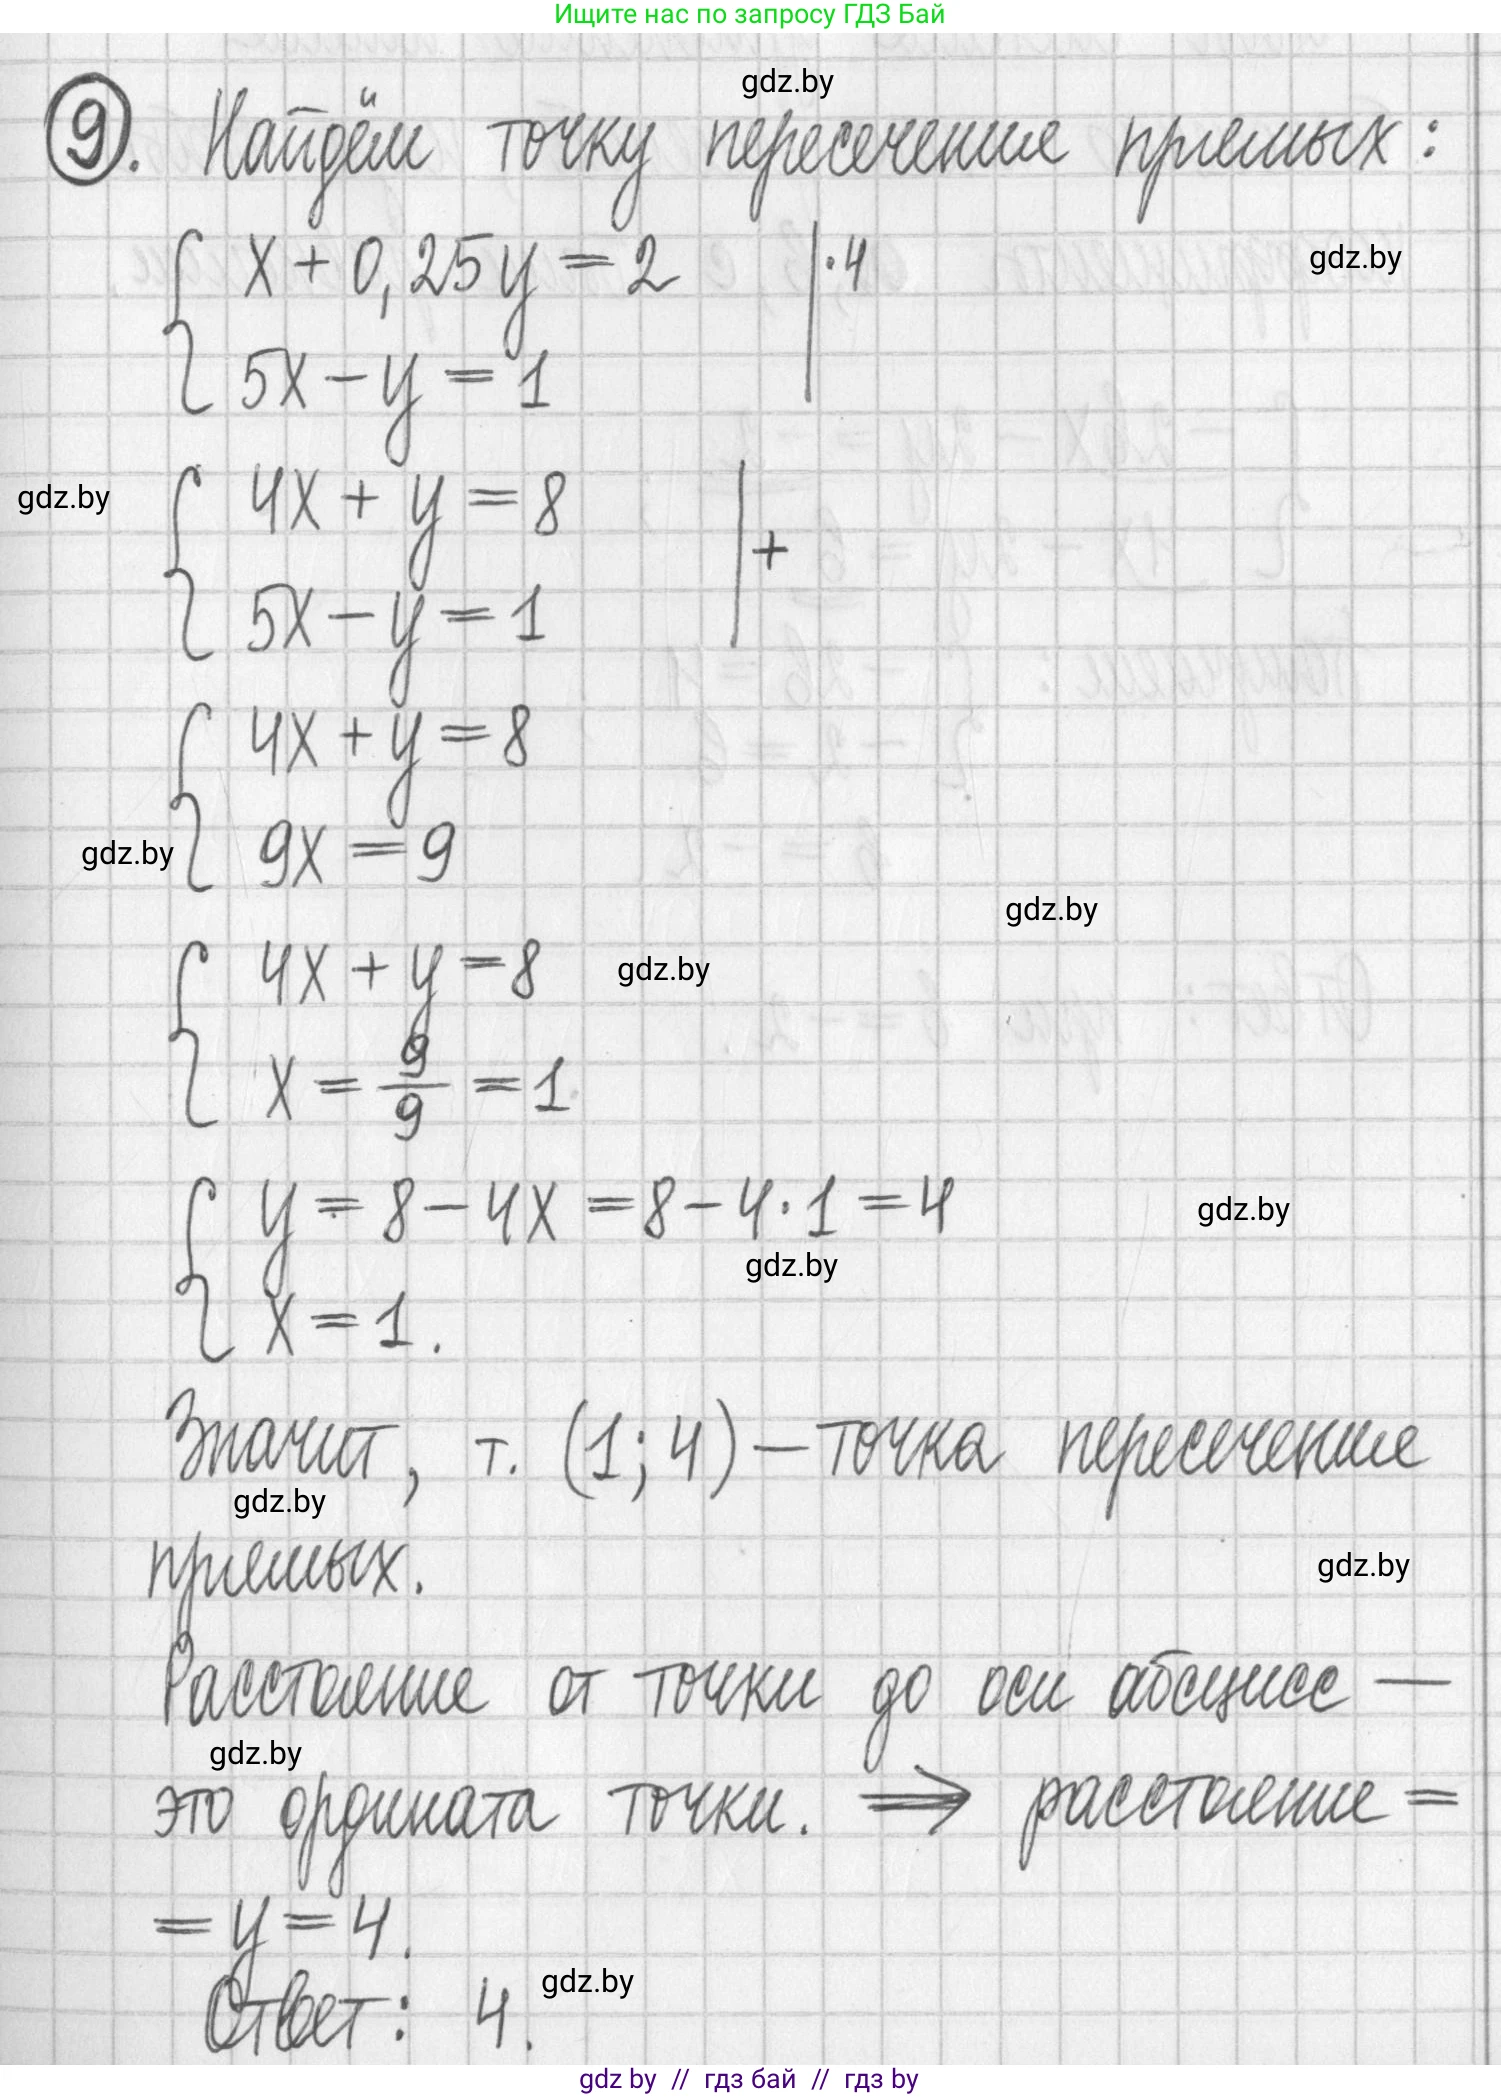 Ищите нас по запросу ГДЗ Бай
gdz.by
9. Найдём точку пересечение прямых:
x + 0,25y = 2 | ·4
gdz.by
5x − y = 1
4x + y = 8
gdz.by
+
5x − y = 1
4x + y = 8
9x = 9
gdz.by
gdz.by
4x + y = 8
gdz.by
x = 9/9 = 1.
y = 8 − 4x = 8 − 4·1 = 4
gdz.by
gdz.by
x = 1.
Значит, т. (1; 4) — точка пересечение
gdz.by
прямых.
gdz.by
Расстояние от точки до оси абсцисс —
gdz.by
это ордината точки. ⇒ расстояние =
= y = 4.
gdz.by
Ответ: 4.
gdz.by // гдз бай // гдз by